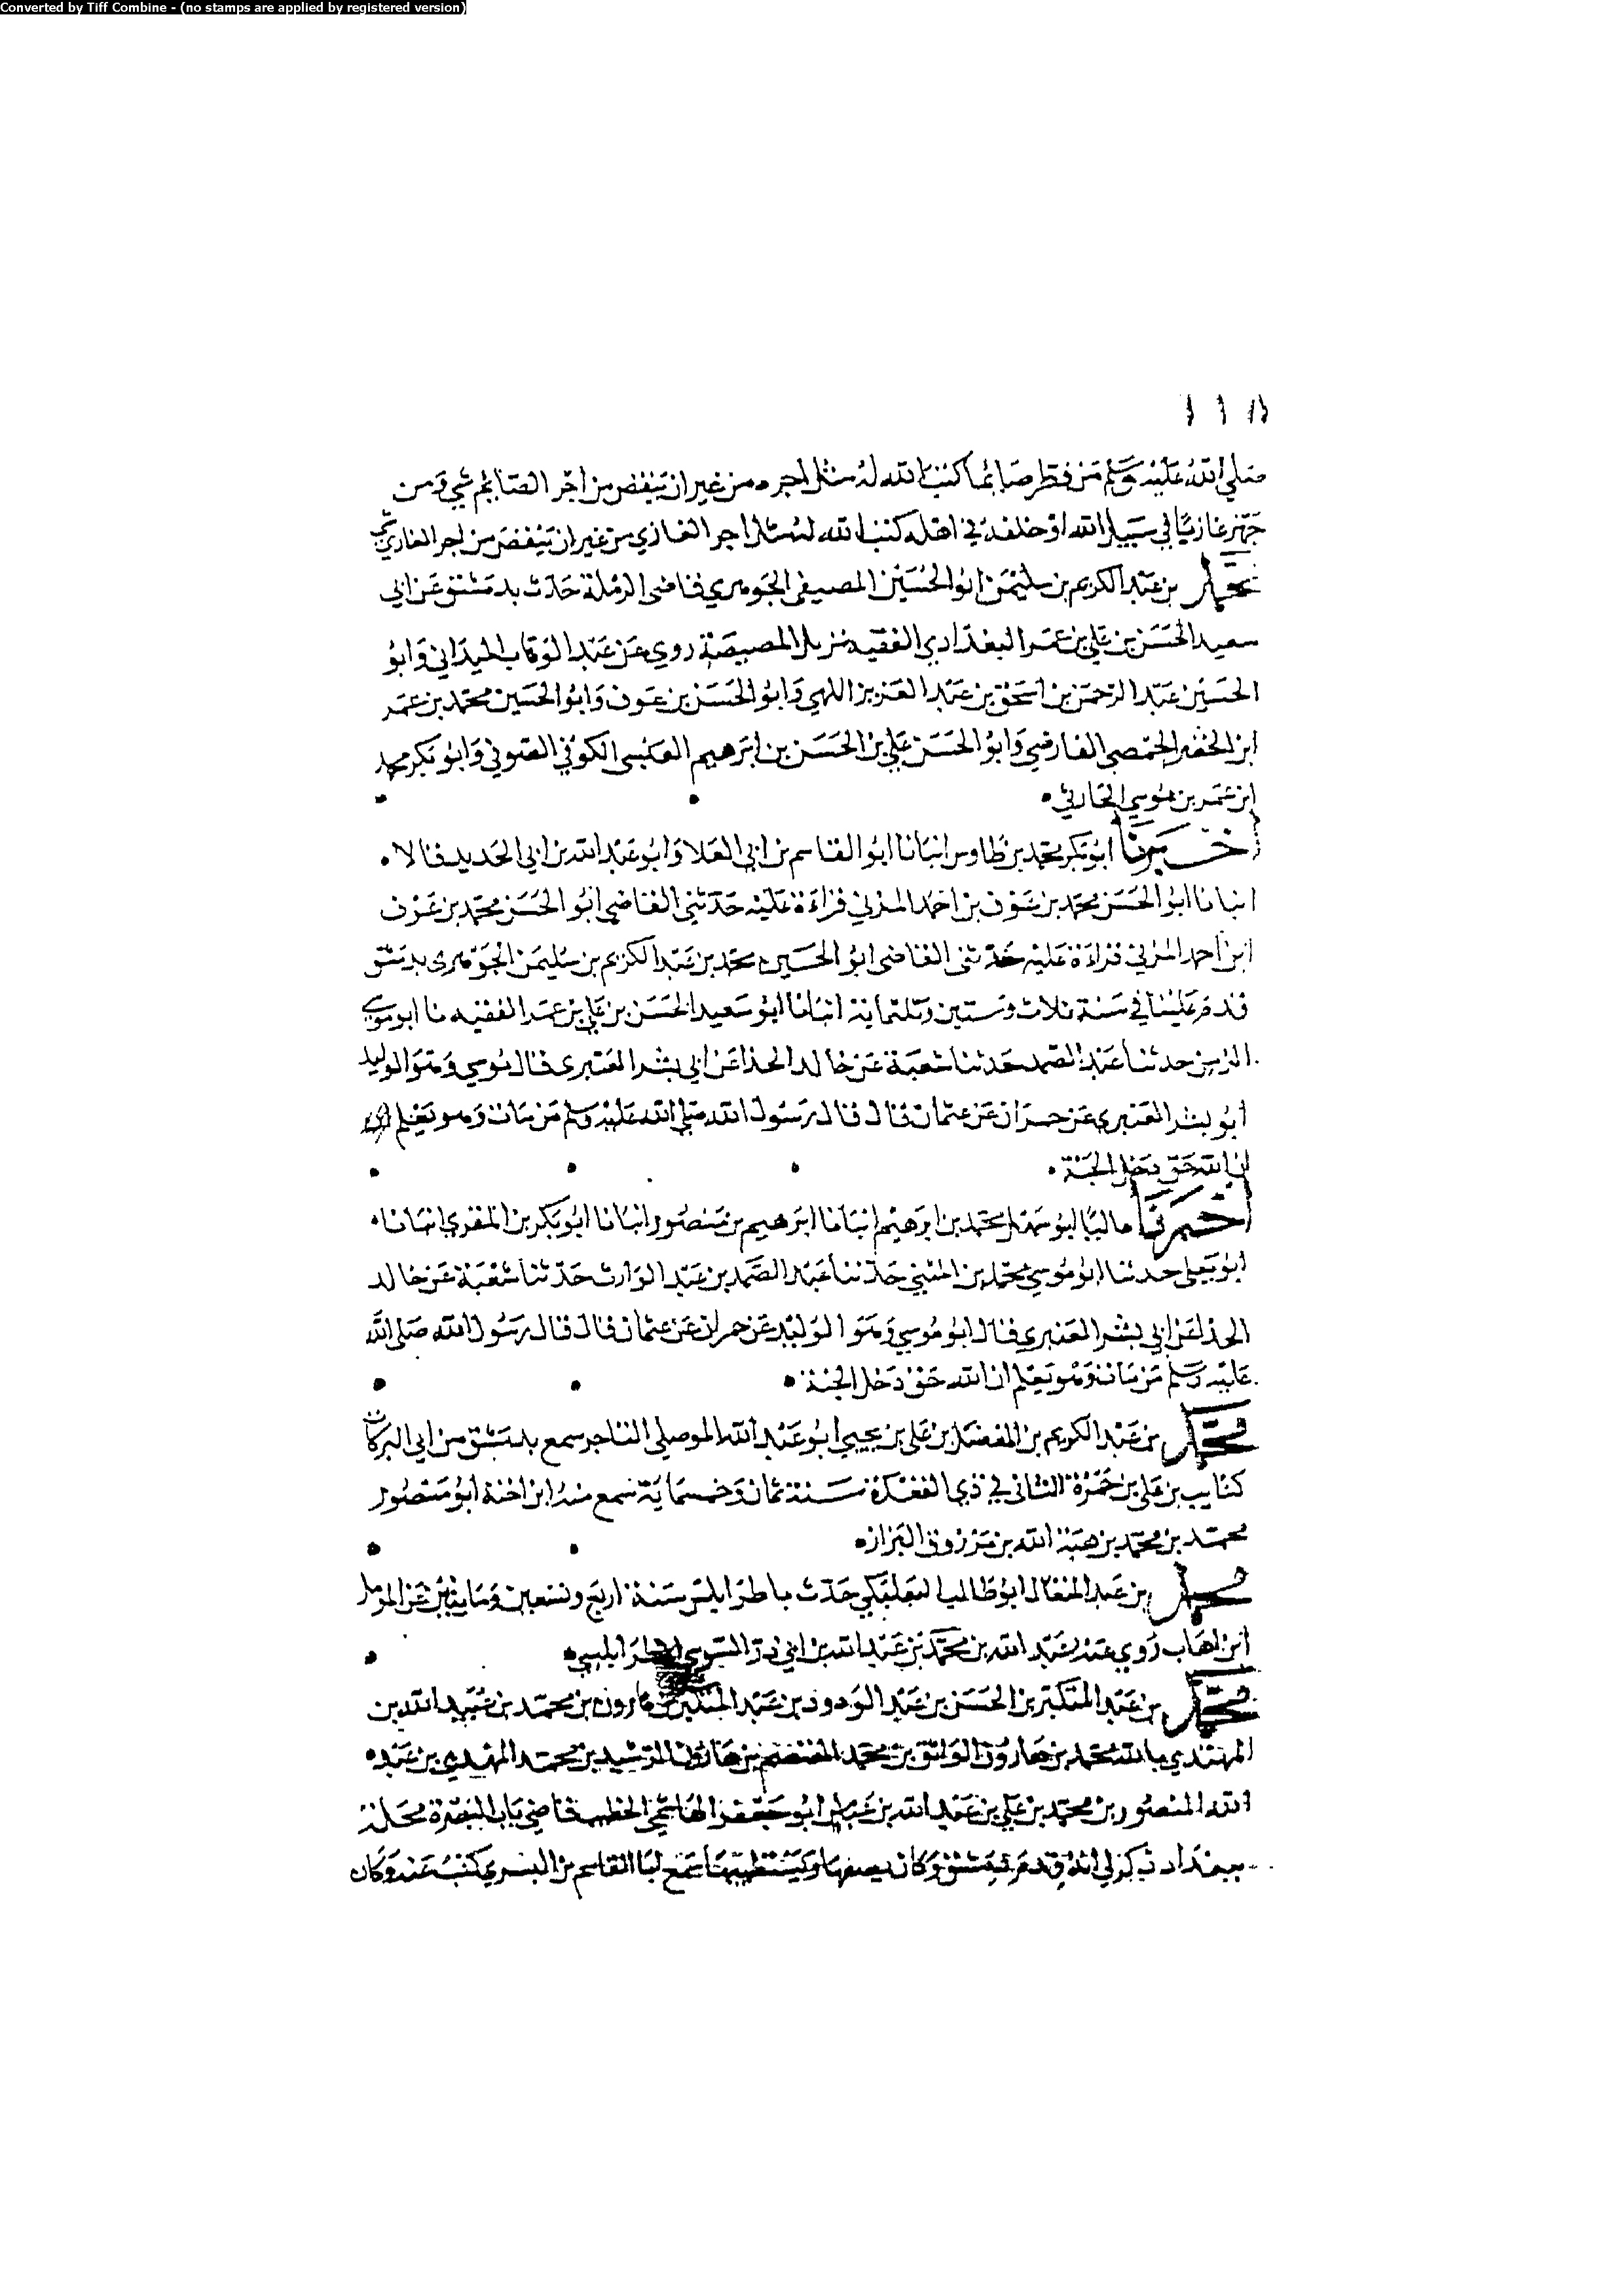 Converted by Tiff Combine - (no stamps are applied by registered version)
صلي الله عليه وسلم من فطر صايما كتب الله له مثل اجره من غير ان ينقص من اجر الصايم شي ومن
جهز غازيا في سبيل الله او خلفه في اهله كتب الله له مثل اجر الغازي من غير ان ينقص من اجر الغازي شي
محمد بن عبد الكريم بن سليمن ابو الحسين المصيصي الجوهري قاضي الرملة حدث بدمشق عن ابي
سعيد الحسن بن علي بن عمر البغدادي الفقيه نزيل المصيصة روي عن عبد الوهاب الميداني وابو
الحسين عبد الرحمن بن اسحق بن عبد العزيز اللهبي وابو الحسن بن عوف وابو الحسين محمد بن عمر
ابن الخضر الحمصي الفارضي وابو الحسن علي بن الحسن بن ابرهيم العبسي الكوفي الصوفي وابو بكر محمد
ابن عمر بن موسي الحارثي
اخبرنا ابو بكر محمد بن طاوس انبانا ابو القاسم بن ابي العلا وابو عبد الله بن ابي الحديد قالا
انبانا ابو الحسن محمد بن عوف بن احمد المزني قراءة عليه حدثني القاضي ابو الحسن محمد بن عوف
ابن احمد المزني قراءة عليه حدثني القاضي ابو الحسين محمد بن عبد الكريم بن سليمن الجوهري بدمشق
قدم علينا في سنة ثلاث وستين وثلثماية انبانا ابو سعيد الحسن بن علي بن عمر الفقيه نا ابو موسي
الزمن حدثنا عبد الصمد حدثنا شعبة عن خالد الحذا عن ابي بشر العنبري قال موسي وهو الوليد
ابو بشر العنبري عن حمران عن عثمان قال قال رسول الله صلي الله عليه وسلم من مات وهو يعلم
ان الله حق دخل الجنة
اخبرنا عاليا ابو سهل محمد بن ابرهيم انبانا ابرهيم بن منصور انبانا ابو بكر بن المقري انبانا
ابو يعلى حدثنا ابو موسي محمد بن المثني حدثنا عبد الصمد بن عبد الوارث حدثنا شعبة عن خالد
الحذا عن ابي بشر العنبري قال ابو موسي وهو الوليد عن حمران عن عثمان قال قال رسول الله صلى الله
عليه وسلم من مات وهو يعلم ان الله حق دخل الجنة
محمد بن عبد الكريم بن المفضل بن علي بن يحيي ابو عبد الله الموصلي التاجر سمع بدمشق من ابي البركات
كتايب بن علي بن حمزة في ذي القعدة سنة ثمان وخمسماية سمع منه ابن اخته ابو منصور
محمد بن محمد بن هبة الله بن مرزوق البزاز
محمد بن عبد المتعال ابو طالب البعلبكي حدث باطرابلس سنة اربع وتسعين ومايتين عن المومل
ابن اهاب روي عنه عبد الله بن محمد بن عبد الله بن ابي ذر السوسي الطرابلسي
محمد بن عبد المتكبر بن الحسن بن عبد الودود بن عبد المتكبر بن هارون بن محمد بن عبيد الله بن
المهتدي بالله محمد بن هارون الواثق بن محمد المعتصم بن هارون الرشيد بن محمد المهدي بن عبد
الله المنصور بن محمد بن علي بن عبد الله بن عباس ابو جعفر الهاشمي الخطيب قاضي باب البصرة محلة
ببغداد ذكر لي انه قدم دمشق وكان يصفها ويستطيبها سمع ابا القاسم بن البسري كتبت عنه وكان